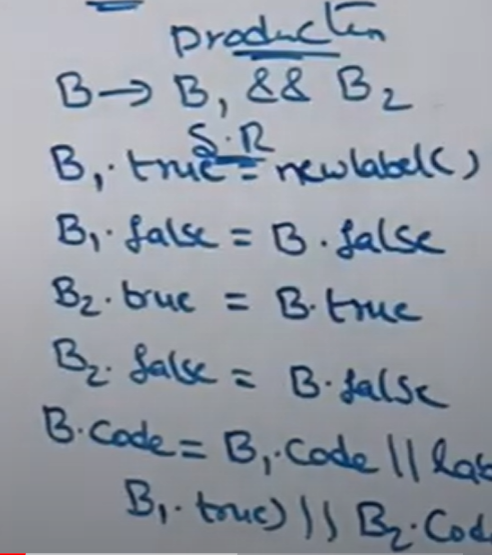 Production
B → B₁ && B₂
S.R
B₁.true = newlabel()
B₁.false = B.false
B₂.true = B.true
B₂.false = B.false
B.code = B₁.code || lab
B₁.true) || B₂.cod